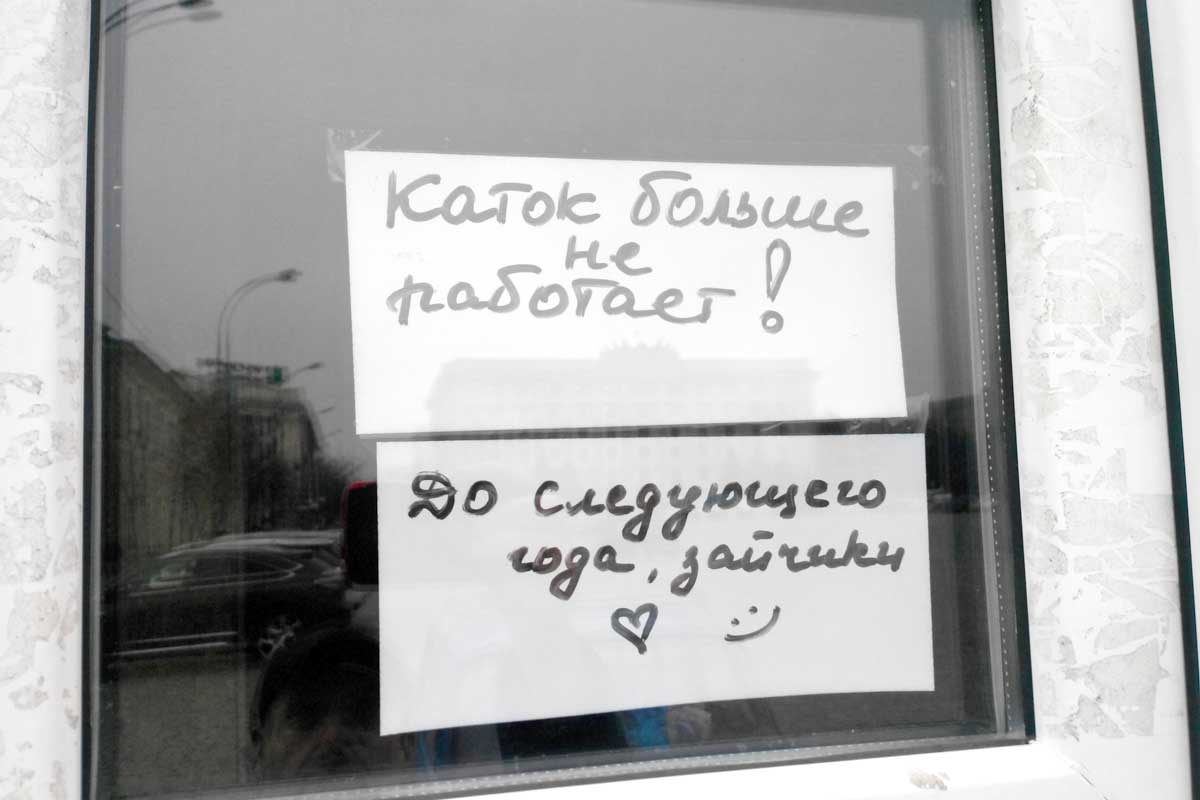 Каток больше
не
работает!
До следующего
года, зайчики